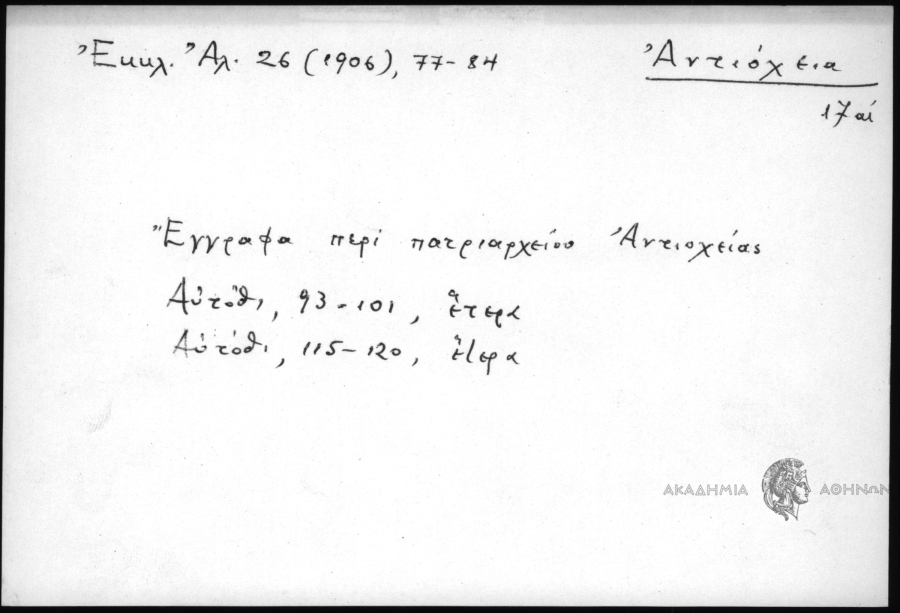 Ἐκκλ. Ἀλ. 26 (1906), 77-84
Ἀντιόχεια
17 αἰ
Ἔγγραφα περὶ πατριαρχείου Ἀντιοχείας
Αὐτόθι, 93-101, ἕτερα
Αὐτόθι, 115-120, ἕτερα
ΑΚΑΔΗΜΙΑ ΑΘΗΝΩΝ